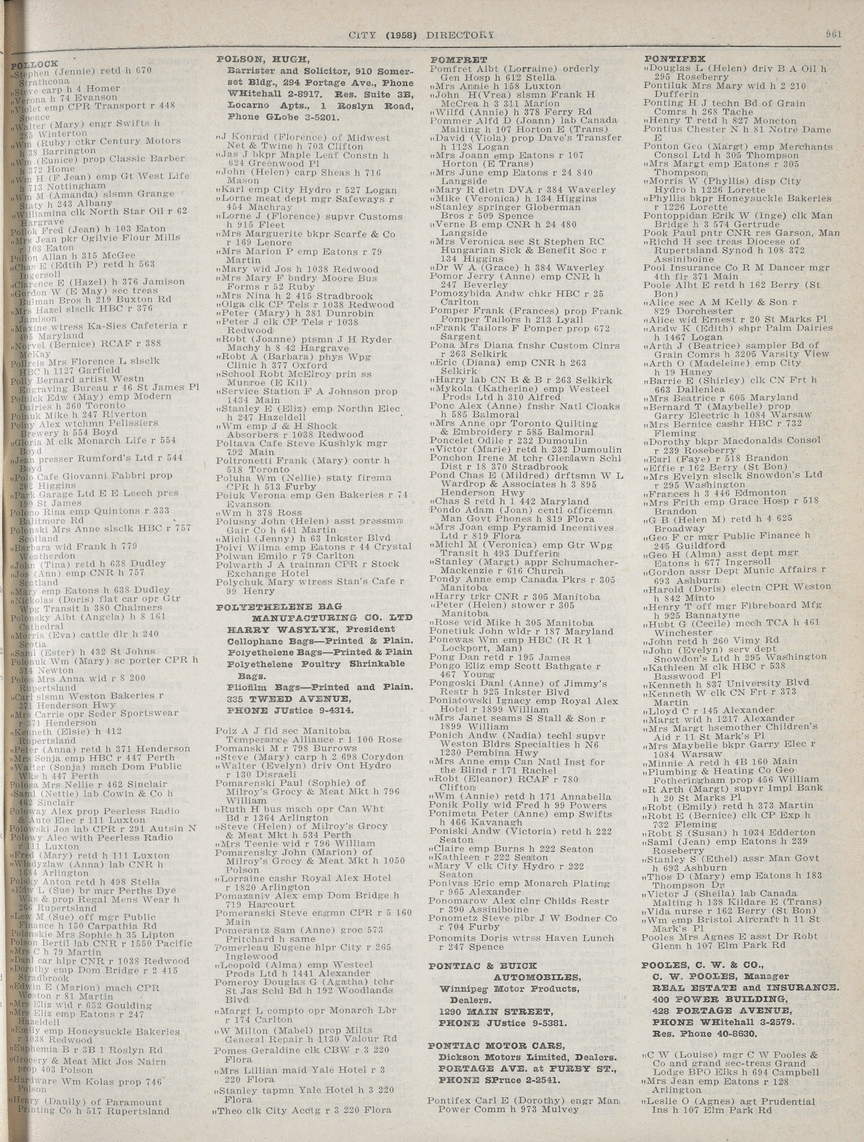 CITY (1958) DIRECTORY
961
POLLOCK
„Stephen (Jennie) retd h 670
Strathcona
„Steve carp h 4 Homer
„Verona h 74 Evanson
„Violet emp CPR Transport r 448
Spence
„Walter (Mary) engr Swifts h
285 Winterton
„Wm (Ruby) ctkr Century Motors
h 38 Barrington
„Wm (Eunice) prop Classic Barber
h 372 Home
„Wm H (F Jean) emp Gt West Life
h 713 Nottingham
„Wm M (Amanda) slsmn Grange
Staty h 243 Albany
„Williamina clk North Star Oil r 62
Hargrave
Pollok Fred (Jean) h 103 Eaton
„Mrs Jean pkr Ogilvie Flour Mills
r 103 Eaton
Pollon Allan h 315 McGee
„Chas E (Edith P) retd h 563
Ingersoll
„Clarence E (Hazel) h 376 Jamison
„Gordon W (E May) sec treas
Bulman Bros h 219 Buxton Rd
„Mrs Hazel slsclk HBC r 376
Jamison
„Maxine wtress Ka-Sies Cafeteria r
405 Maryland
„Norvel (Bernice) RCAF r 388
McKay
Mrs Florence L slsclk
HBC h 1127 Garfield
Polly Bernard artist Westn
Engraving Bureau r 46 St James Pl
Polnick Edw (May) emp Modern
Dairies h 360 Toronto
Polnuk Mike h 247 Riverton
Polny Alex wtchmn Pelissiers
Brewery h 554 Boyd
„Gloria M clk Monarch Life r 554
Boyd
„Jean presser Rumford's Ltd r 544
Boyd
„Polo Cafe Giovanni Fabbri prop
202 Higgins
„Park Garage Ltd E E Leech pres
190 St James
Polono Rina emp Quintons r 333
Balitmore Rd
Polonski Mrs Anne slsclk HBC r 757
Scotland
„Barbara wid Frank h 779
Weatherdon
„John (Tina) retd h 638 Dudley
„Jos (Ann) emp CNR h 757
Scotland
„Mary emp Eatons r 638 Dudley
„Nickolas (Doris) flat car opr Gtr
Wpg Transit h 380 Chalmers
Polonsky Albt (Angela) h 8 161
Cathedral
„Morris (Eva) cattle dlr h 240
Scotia
„Saml (Ester) h 432 St Johns
Polonuk Wm (Mary) sc porter CPR h
514 Newton
Polos Mrs Anna wid r 8 200
Rupertsland
„Carl slsmn Weston Bakeries r
371 Henderson Hwy
„Mrs Carrie opr Seder Sportswear
r 371 Henderson
„Kenneth (Elsie) h 412
Rupertsland
„Peter (Anna) retd h 371 Henderson
„Mrs Sonja emp HBC r 447 Perth
„Walter (Sonja) mach Dom Public
Wks h 447 Perth
Poloss Mrs Nellie r 462 Sinclair
„Saml (Nettie) lab Cowin & Co h
462 Sinclair
Poloway Alex prop Peerless Radio
& Auto Elec r 111 Luxton
Polowski Jos lab CPR r 291 Autsin N
Polowy Alec with Peerless Radio
r 111 Luxton
„Fred (Mary) retd h 111 Luxton
„Wladyzlaw (Anna) lab CNR h
1684 Arlington
Polsky Anton retd h 498 Stella
„Edw L (Sue) br mgr Perths Dye
Wks & prop Regal Mens Wear h
266 Rupertsland
„Lew M (Sue) off mgr Public
Finance h 150 Carpathia Rd
Polsnskie Mrs Sophie h 35 Lipton
Polson Bertil lab CNR r 1550 Pacific
„Mrs C h 79 Martin
„Danl car hlpr CNR r 1038 Redwood
„Dorothy emp Dom Bridge r 2 415
Stradbrook
„Edwin E (Marion) mach CPR
Weston r 81 Martin
„Mrs Eliz wid r 652 Goulding
„Mrs Eliz emp Eatons r 247
Hazeldell
„Emily emp Honeysuckle Bakeries
r 1038 Redwood
„Euphemia B r 3B 1 Roslyn Rd
„Grocery & Meat Mkt Jos Nairn
prop 403 Polson
„Hardware Wm Kolas prop 746
Polson
„Henry (Daully) of Paramount
Printing Co h 517 Rupertsland
POLSON, HUGH,
Barrister and Solicitor, 910 Somer-
set Bldg., 294 Portage Ave., Phone
WHitehall 2-8917. Res. Suite 3B,
Locarno Apts., 1 Roslyn Road,
Phone GLobe 3-5201.
„J Konrad (Florence) of Midwest
Net & Twine h 703 Clifton
„Jas J bkpr Maple Leaf Constn h
624 Greenwood Pl
„John (Helen) carp Sheas h 716
Mason
„Karl emp City Hydro r 527 Logan
„Lorne meat dept mgr Safeways r
454 Machray
„Lorne J (Florence) supvr Customs
h 915 Fleet
„Mrs Marguerite bkpr Scarfe & Co
r 169 Lenore
„Mrs Marion P emp Eatons r 79
Martin
„Mary wid Jos h 1038 Redwood
„Mrs Mary F bndry Moore Bus
Forms r 52 Ruby
„Mrs Nina h 2 415 Stradbrook
„Olga clk CP Tels r 1038 Redwood
„Peter (Mary) h 381 Dunrobin
„Peter J clk CP Tels r 1038
Redwood
„Robt (Joanne) ptsmn J H Ryder
Machy h 8 42 Hargrave
„Robt A (Barbara) phys Wpg
Clinic h 377 Oxford
„School Robt McElroy prin ss
Munroe (E Kil)
„Service Station F A Johnson prop
1434 Main
„Stanley E (Eliz) emp Northn Elec
h 247 Hazeldell
„Wm emp J & H Shock
Absorbers r 1038 Redwood
Poltava Cafe Steve Kushlyk mgr
792 Main
Poltronetti Frank (Mary) contr h
518 Toronto
Poluha Wm (Nellie) staty firemn
CPR h 513 Furby
Poluk Verona emp Gen Bakeries r 74
Evanson
„Wm h 378 Ross
Polusny John (Helen) asst pressmn
Gair Co h 641 Martin
„Michl (Jenny) h 63 Inkster Blvd
Polvi Wilma emp Eatons r 44 Crystal
Polwan Emile r 79 Carlton
Polwarth J A trainmn CPR r Stock
Exchange Hotel
Polychuk Mary wtress Stan's Cafe r
99 Henry
POLYETHELENE BAG
MANUFACTURING CO. LTD
HARRY WASYLYK, President
Cellophane Bags—Printed & Plain.
Polyethelene Bags—Printed & Plain
Polyethelene Poultry Shrinkable
Bags.
Pliofilm Bags—Printed and Plain.
335 TWEED AVENUE,
PHONE JUstice 9-4314.
Polz A J fld sec Manitoba
Temperance Alliance r 1 100 Rose
Pomanski M r 798 Burrows
„Steve (Mary) carp h 2 698 Corydon
„Walter (Evelyn) driv Ont Hydro
r 130 Disraeli
Pomarenski Paul (Sophie) of
Milroy's Grocy & Meat Mkt h 796
William
„Ruth H bus mach opr Can Wht
Bd r 1364 Arlington
„Steve (Helen) of Milroy's Grocy
& Meat Mkt h 534 Perth
„Mrs Teenie wid r 796 William
Pomarensky John (Marion) of
Milroy's Grocy & Meat Mkt h 1050
Polson
„Lorraine cashr Royal Alex Hotel
r 1820 Arlington
Pomazaniv Alex emp Dom Bridge h
719 Harcourt
Pomeranski Steve engmn CPR r 5 160
Main
Pomerantz Sam (Anne) groc 573
Pritchard h same
Pomerleau Eugene hlpr City r 265
Inglewood
„Leopold (Alma) emp Westeel
Prods Ltd h 1441 Alexander
Pomeroy Douglas G (Agatha) tchr
St Jas Schl Bd h 192 Woodlands
Blvd
„Margt L compto opr Monarch Lbr
r 174 Carlton
„W Milton (Mabel) prop Milts
General Repair h 1130 Valour Rd
Pomes Geraldine clk CBW r 3 220
Flora
„Mrs Lillian maid Yale Hotel r 3
220 Flora
„Stanley tapmn Yale Hotel h 3 220
Flora
„Theo clk City Acctg r 3 220 Flora
POMFRET
Pomfret Albt (Lorraine) orderly
Gen Hosp h 612 Stella
„Mrs Annie h 158 Luxton
„John H(Vera) slsmn Frank H
McCrea h 3 311 Marion
„Wilfd (Annie) h 378 Ferry Rd
Pommer Alfd D (Joann) lab Canada
Malting h 107 Horton E (Trans)
„David (Viola) prop Dave's Transfer
h 1128 Logan
„Mrs Joann emp Eatons r 107
Horton (E Trans)
„Mrs June emp Eatons r 24 840
Langside
„Mary R dietn DVA r 384 Waverley
„Mike (Veronica) h 134 Higgins
„Stanley springer Globerman
Bros r 509 Spence
„Verne B emp CNR h 24 480
Langside
„Mrs Veronica sec St Stephen RC
Hungarian Sick & Benefit Soc r
134 Higgins
„Dr W A (Grace) h 384 Waverley
Pomor Jerry (Anne) emp CNR h
247 Beverley
Pomozybida Andw chkr HBC r 25
Carlton
Pomper Frank (Frances) prop Frank
Pomper Tailors h 213 Lyall
„Frank Tailors F Pomper prop 672
Sargent
Pona Mrs Diana fnshr Custom Clnrs
r 263 Selkirk
„Eric (Diana) emp CNR h 263
Selkirk
„Harry lab CN B & B r 263 Selkirk
„Mykola (Katherine) emp Westeel
Prods Ltd h 310 Alfred
Ponc Alex (Anne) fnshr Natl Cloaks
h 585 Balmoral
„Mrs Anne opr Toronto Quilting
& Embroidery r 585 Balmoral
Poncelet Odile r 232 Dumoulin
„Victor (Marie) retd h 232 Dumoulin
Ponchon Irene M tchr Glenlawn Schl
Dist r 18 370 Stradbrook
Pond Chas E (Mildred) drftsmn W L
Wardrop & Associates h 3 895
Henderson Hwy
„Chas S retd h 1 442 Maryland
Pondo Adam (Joan) centl officemn
Man Govt Phones h 819 Flora
„Mrs Joan emp Pyramid Incentives
Ltd r 819 Flora
„Michl M (Veronica) emp Gtr Wpg
Transit h 493 Dufferin
„Stanley (Margt) appr Schumacher-
Mackenzie r 616 Church
Pondy Anne emp Canada Pkrs r 305
Manitoba
„Harry trkr CNR r 305 Manitoba
„Peter (Helen) stower r 305
Manitoba
„Rose wid Mike h 305 Manitoba
Ponetiuk John wldr r 187 Maryland
Ponewas Wm emp HBC (R R 1
Lockport, Man)
Pong Dan retd r 195 James
Pongo Eliz emp Scott Bathgate r
467 Young
Pongoski Danl (Anne) of Jimmy's
Restr h 925 Inkster Blvd
Poniatowski Ignacy emp Royal Alex
Hotel r 1899 William
„Mrs Janet seams S Stall & Son r
1899 William
Ponich Andw (Nadia) techl supvr
Weston Bldrs Specialties h N6
1230 Pembina Hwy
„Mrs Anne emp Can Natl Inst for
the Blind r 171 Rachel
„Robt (Eleanor) RCAF r 780
Clifton
„Wm (Annie) retd h 171 Annabella
Ponik Polly wid Fred h 99 Powers
Ponimeta Peter (Anne) emp Swifts
h 466 Kavanagh
Poniski Andw (Victoria) retd h 222
Seaton
„Claire emp Burns h 222 Seaton
„Kathleen r 222 Seaton
„Mary V clk City Hydro r 222
Seaton
Ponivas Eric emp Monarch Plating
r 965 Alexander
Ponomarow Alex clnr Childs Restr
r 390 Assiniboine
Ponometz Steve plbr J W Bodner Co
r 704 Furby
Ponomits Doris wtrss Haven Lunch
r 247 Spence
PONTIAC & BUICK
AUTOMOBILES,
Winnipeg Motor Products,
Dealers.
1290 MAIN STREET,
PHONE JUstice 9-5381.
PONTIAC MOTOR CARS,
Dickson Motors Limited, Dealers.
PORTAGE AVE. at FURBY ST.,
PHONE SPruce 2-2541.
Pontifex Carl E (Dorothy) engr Man
Power Comm h 973 Mulvey
PONTIFEX
„Douglas L (Helen) driv B A Oil h
295 Roseberry
Pontiluk Mrs Mary wid h 2 210
Dufferin
Ponting H J techn Bd of Grain
Comrs h 268 Tache
„Henry T retd h 827 Moncton
Pontius Chester N h 81 Notre Dame
E
Ponton Geo (Margt) emp Merchants
Consol Ltd h 305 Thompson
„Mrs Margt emp Eatons r 305
Thompson
„Morris W (Phyllis) disp City
Hydro h 1226 Lorette
„Phyllis bkpr Honeysuckle Bakeries
r 1226 Lorette
Pontoppidan Erik W (Inge) clk Man
Bridge h 3 574 Gertrude
Pook Paul pntr CNR res Garson, Man
„Richd H sec treas Diocese of
Rupertsland Synod h 108 372
Assiniboine
Pool Insurance Co R M Dancer mgr
4th flr 371 Main
Poole Albt E retd h 162 Berry (St
Bon)
„Alice sec A M Kelly & Son r
829 Dorchester
„Alice wid Ernest r 20 St Marks Pl
„Andw K (Edith) shpr Palm Dairies
h 1467 Logan
„Arth J (Beatrice) sampler Bd of
Grain Comrs h 3205 Varsity View
„Arth O (Madeleine) emp City
h 19 Haney
„Barrie E (Shirley) clk CN Frt h
663 Dallenlea
„Mrs Beatrice r 605 Maryland
„Bernard T (Maybelle) prop
Garry Electric h 1084 Warsaw
„Mrs Bernice cashr HBC r 732
Fleming
„Dorothy bkpr Macdonalds Consol
r 239 Roseberry
„Earl (Faye) r 518 Brandon
„Effie r 162 Berry (St Bon)
„Mrs Evelyn slsclk Snowdon's Ltd
r 295 Washington
„Frances h 3 446 Edmonton
„Mrs Frith emp Grace Hosp r 518
Brandon
„G B (Helen M) retd h 4 625
Broadway
„Geo F cr mgr Public Finance h
245 Guildford
„Geo H (Alma) asst dept mgr
Eatons h 677 Ingersoll
„Gordon assr Dept Munic Affairs r
693 Ashburn
„Harold (Doris) electn CPR Weston
h 842 Minto
„Henry T off mgr Fibreboard Mfg
h 925 Bannatyne
„Hubt G (Cecile) mech TCA h 461
Winchester
„John retd h 260 Vimy Rd
„John (Evelyn) serv dept
Snowdon's Ltd h 295 Washington
„Kathleen M clk HBC r 538
Basswood Pl
„Kenneth h 837 University Blvd
„Kenneth W clk CN Frt r 373
Martin
„Lloyd C r 145 Alexander
„Margt wid h 1217 Alexander
„Mrs Margt hsemother Children's
Aid r 11 St Mark's Pl
„Mrs Maybelle bkpr Garry Elec r
1084 Warsaw
„Minnie A retd h 4B 160 Main
„Plumbing & Heating Co Geo
Fotheringham prop 456 William
„R Arth (Margt) supvr Impl Bank
h 20 St Marks Pl
„Robt (Emily) retd h 373 Martin
„Robt E (Bernice) clk CP Exp h
732 Fleming
„Robt S (Susan) h 1034 Edderton
„Saml (Jean) emp Eatons h 239
Roseberry
„Stanley S (Ethel) assr Man Govt
h 693 Ashburn
„Thos D (Mary) emp Eatons h 183
Thompson Dr
„Victor J (Sheila) lab Canada
Malting h 138 Kildare E (Trans)
„Vida nurse r 162 Berry (St Bon)
„Wm emp Bristol Aircraft h 11 St
Mark's Pl
Pooles Mrs Agnes E asst Dr Robt
Glenn h 107 Elm Park Rd
POOLES, C. W. & CO.,
C. W. POOLES, Manager
REAL ESTATE and INSURANCE.
400 POWER BUILDING,
428 PORTAGE AVENUE,
PHONE WHitehall 3-2579.
Res. Phone 40-8630.
„C W (Louise) mgr C W Pooles &
Co and grand sec-treas Grand
Lodge BPO Elks h 694 Campbell
„Mrs Jean emp Eatons r 128
Arlington
„Leslie O (Agnes) agt Prudential
Ins h 107 Elm Park Rd